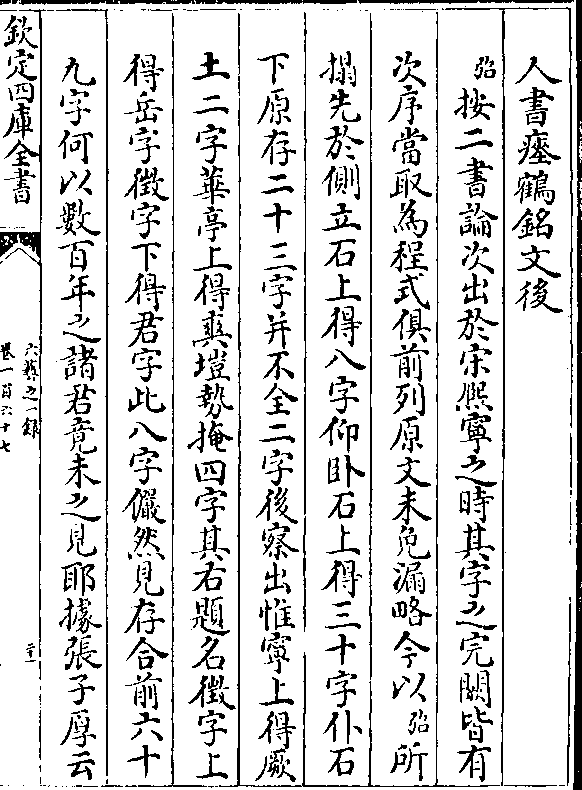 人書瘞鶴銘文後
弨按二書論次出於宋熈寧之時其字之完闕皆有
次序當取為程式俱前列原文未免漏略今以弨所
搨先於側立石上得八字仰卧石上得三十字仆石
下原存二十三字并不全二字後察出惟寧上得厥
土二字華亭上得爽塏勢掩四字其右題名徵字上
得岳字徵字下得君字此八字儼然見存合前六十
九字何以數百年之諸君竟未之見耶據張子厚云
欽定四庫全書
六藝之一録
卷一百六十七